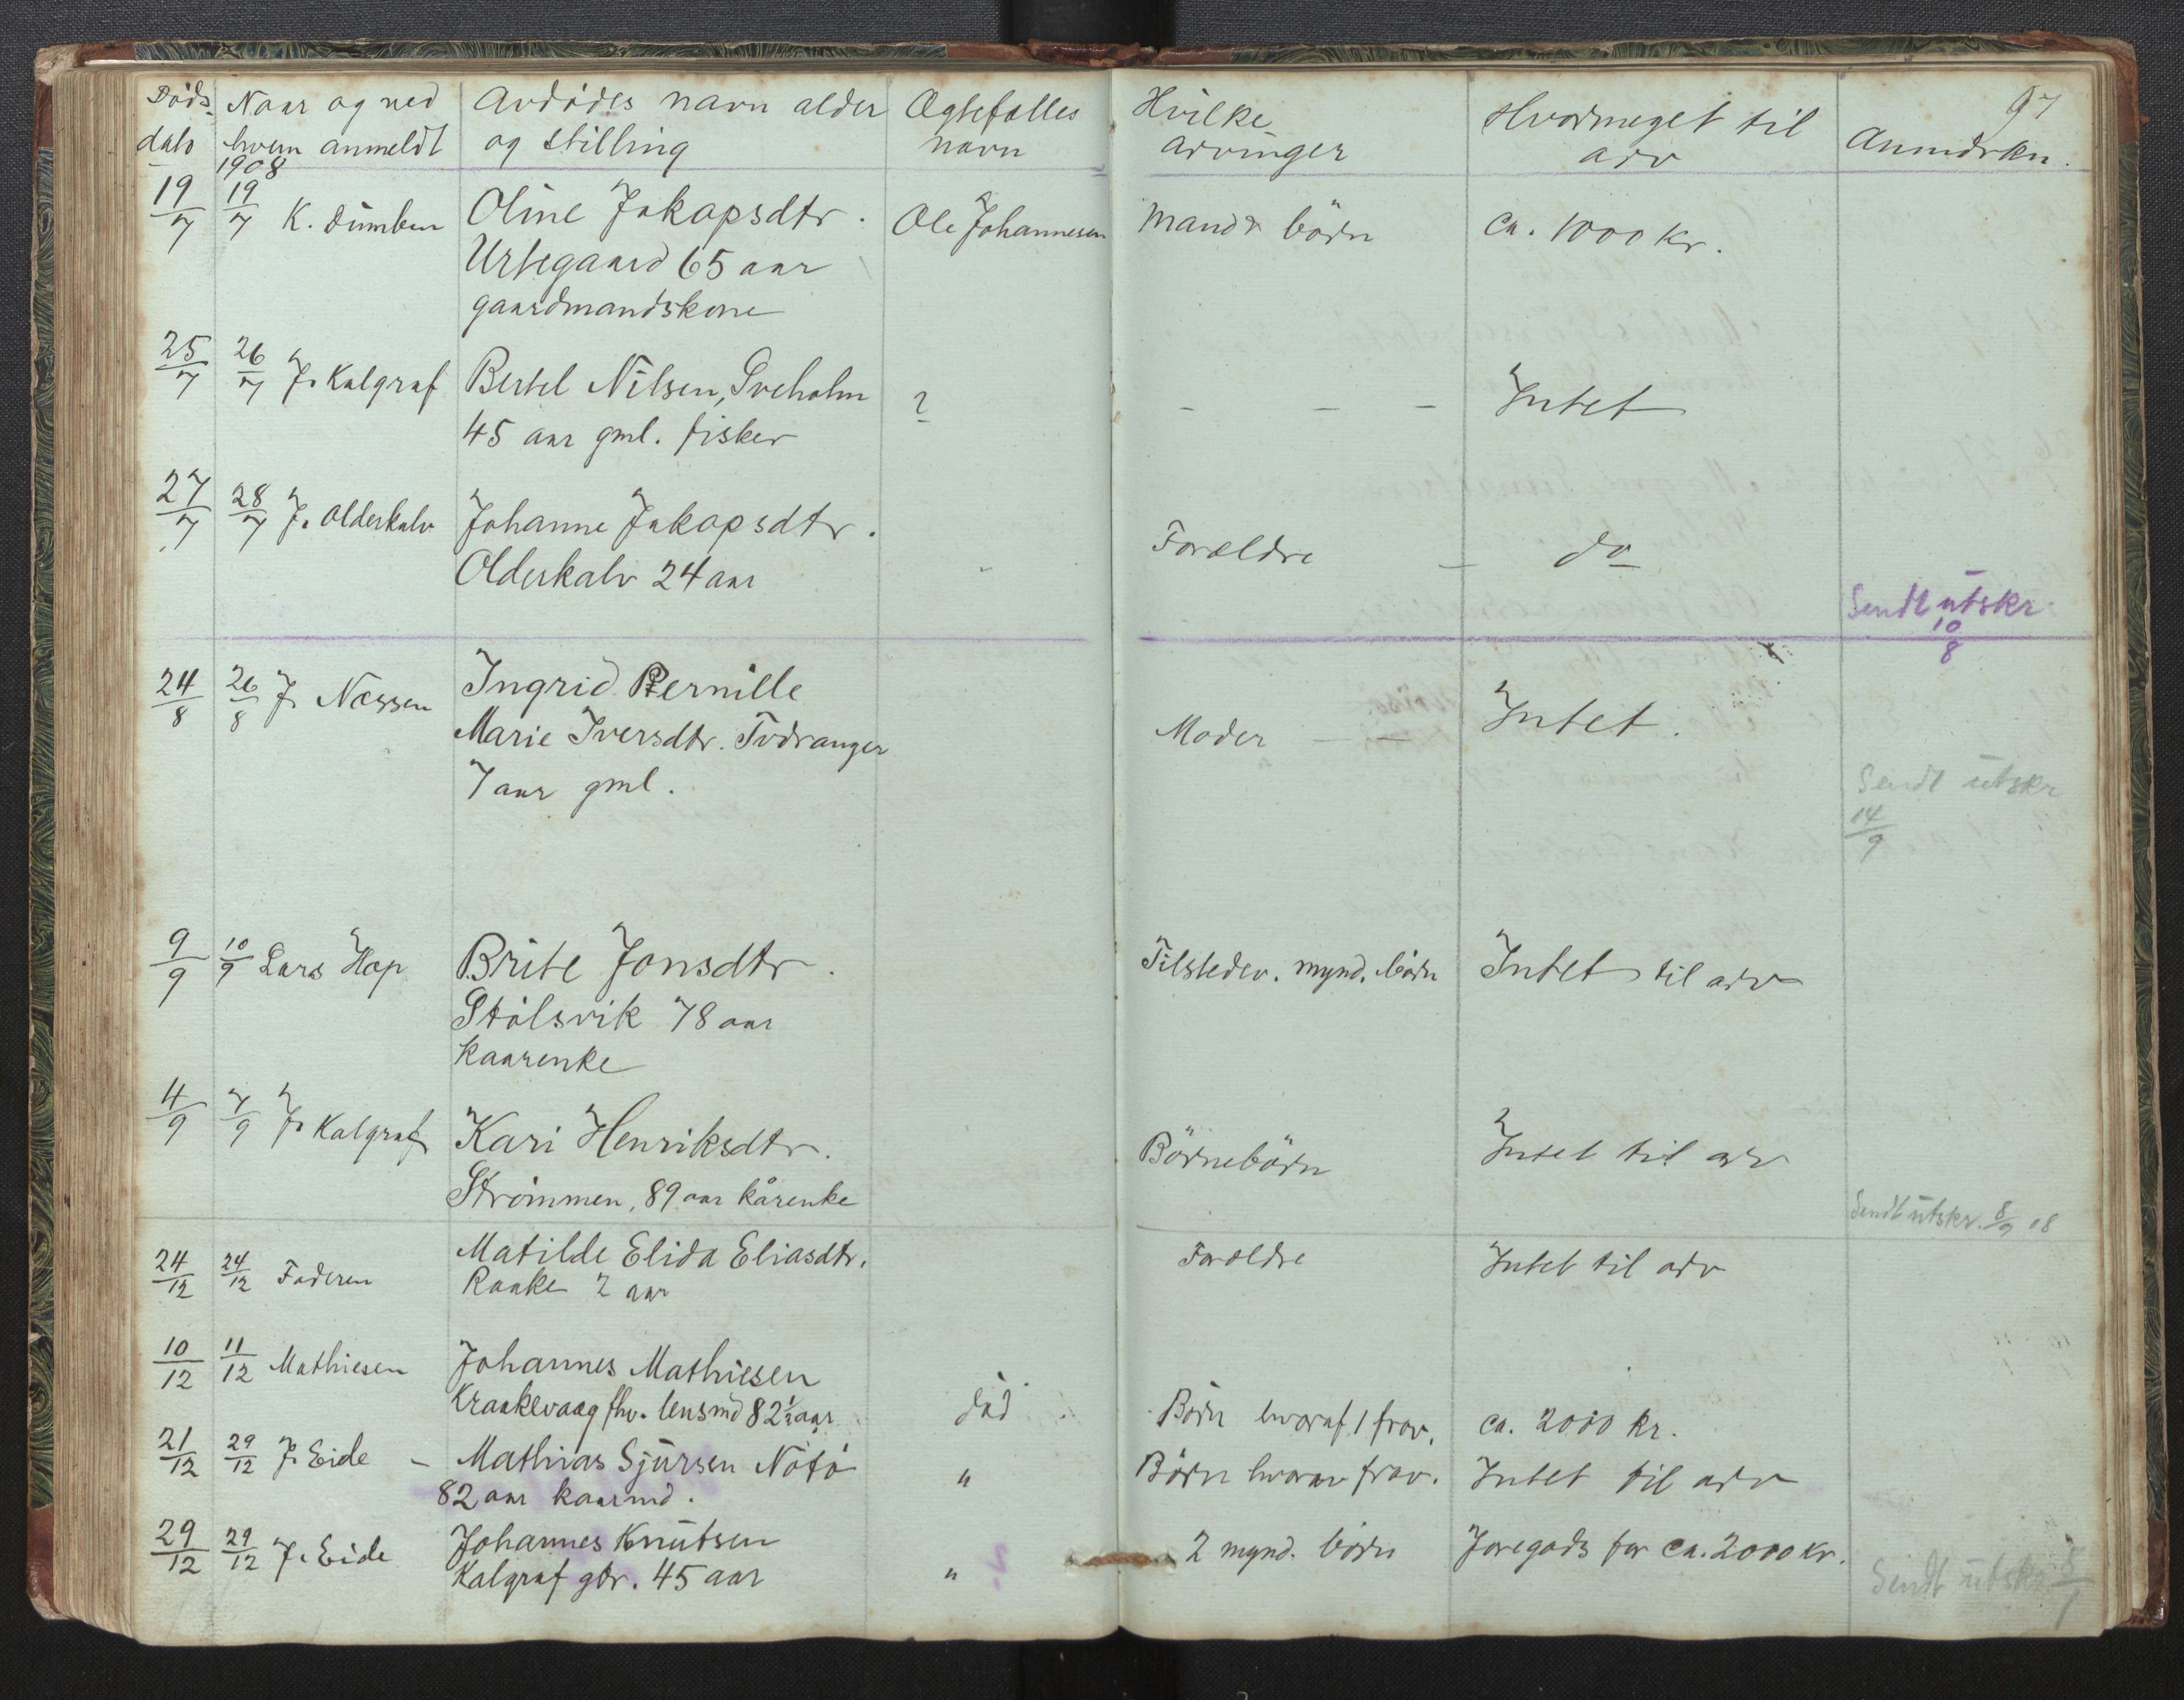 97
Döds- Naar og ved Avdödes navn alder Ægtefælles Hvilke Hvormeget til Anmdrkn.
dato hvem anmeldt og stilling navn arvinger arv
1908
19/7 19/7 K. Dümben Oline Jakopsdtr. Ole Johannesen Mand & börn Ca. 1000 Kr.
Urtegaard 65 aar
gaardmandskone
25/7 26/7 J. Kalgraf Bertel Nilsen, Sveholm ? - - - Intet
45 aar gml. fisker
27/7 28/7 J. Olderkalv Johanne Jakopsdtr. Forældre - do
Olderkalv 24 aar
Sendt utskr. 10/8
24/8 26/8 J. Næssen Ingrid Pernille
Marie Iversdtr. Tvdranger Moder - - Intet.
7 aar gml.
Sendt utskr
14/9
9/9 10/9 Lars Hop Brite Jonsdtr. Tilstedev. mynd. börn Intet til arv
Stölsvik 78 aar
Kaarenke
4/9 7/9 J. Kalgraf Kari Henriksdtr. Börnebörn Intet til arv
Strömmen, 89 aar kårenke
Sendt utskr. 8/9 08
24/12 24/12 Faderen Matilde Elida Eliasdtr. Forældre Intet til arv
Raake 2 aar
10/12 11/12 Mathiesen Johannes Mathiesen
Kraakevaag fhv. lensmd 82½ aar död Börn hvoraf 1 frav. ca. 2000 kr.
21/12 29/12 J. Eide - Mathias Sjursen Nötö " Börn hvorav frav. Intet til arv
82 aar kaarmd.
29/12 29/12 J. Eide Johannes Knutsen 2 mynd. börn Joregods for ca. 2000 Kr.
Kalgraf gbr. 45 aar "
Sendt utskr 5/1